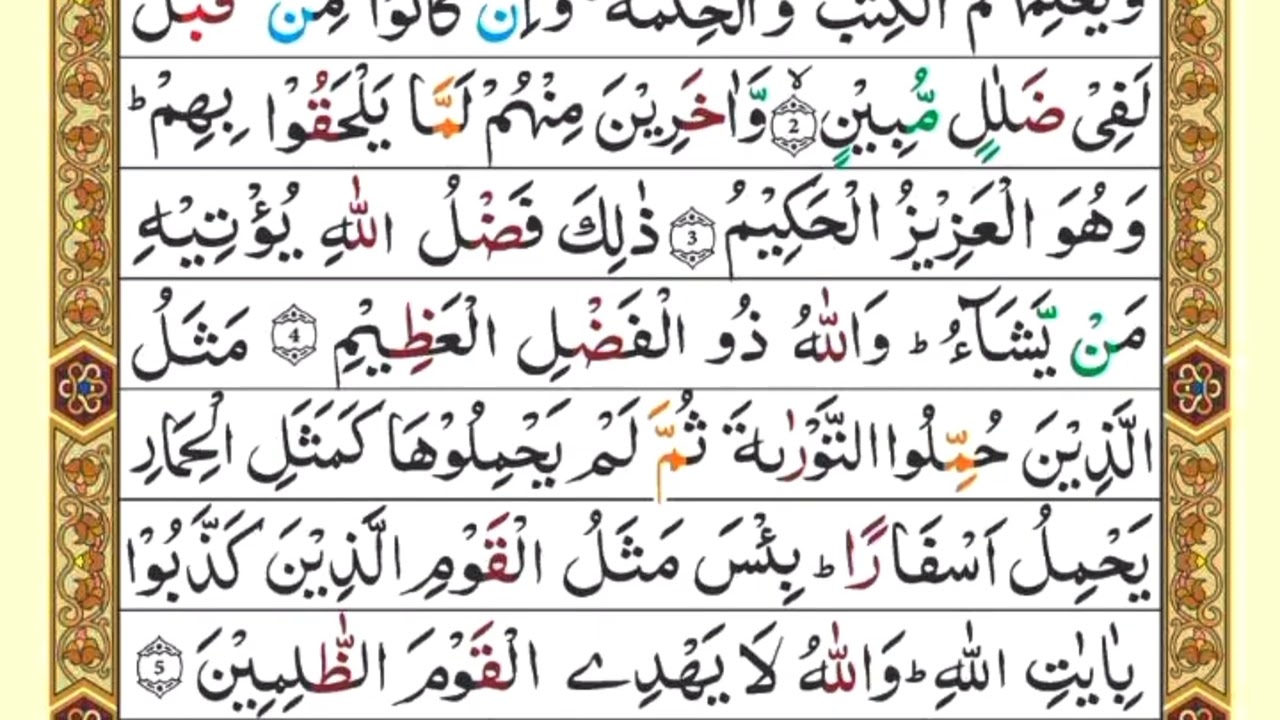 وَيُعَلِّمُهُمُ الْكِتٰبَ وَالْحِكْمَةَ وَاِنْ كَانُوْا مِنْ قَبْلُ
لَفِيْ ضَلٰلٍ مُّبِيْنٍ ۙ﴿2﴾ وَّاٰخَرِيْنَ مِنْهُمْ لَمَّا يَلْحَقُوْا بِهِمْ ؕ
وَهُوَ الْعَزِيْزُ الْحَكِيْمُ ﴿3﴾ ذٰلِكَ فَضْلُ اللّٰهِ يُؤْتِيْهِ
مَنْ يَّشَآءُ ؕ وَاللّٰهُ ذُو الْفَضْلِ الْعَظِيْمِ ﴿4﴾ مَثَلُ
الَّذِيْنَ حُمِّلُوا التَّوْرٰىةَ ثُمَّ لَمْ يَحْمِلُوْهَا كَمَثَلِ الْحِمَارِ
يَحْمِلُ اَسْفَارًا ؕ بِئْسَ مَثَلُ الْقَوْمِ الَّذِيْنَ كَذَّبُوْا
بِاٰيٰتِ اللّٰهِ ؕ وَاللّٰهُ لَا يَهْدِے الْقَوْمَ الظّٰلِمِيْنَ ﴿5﴾